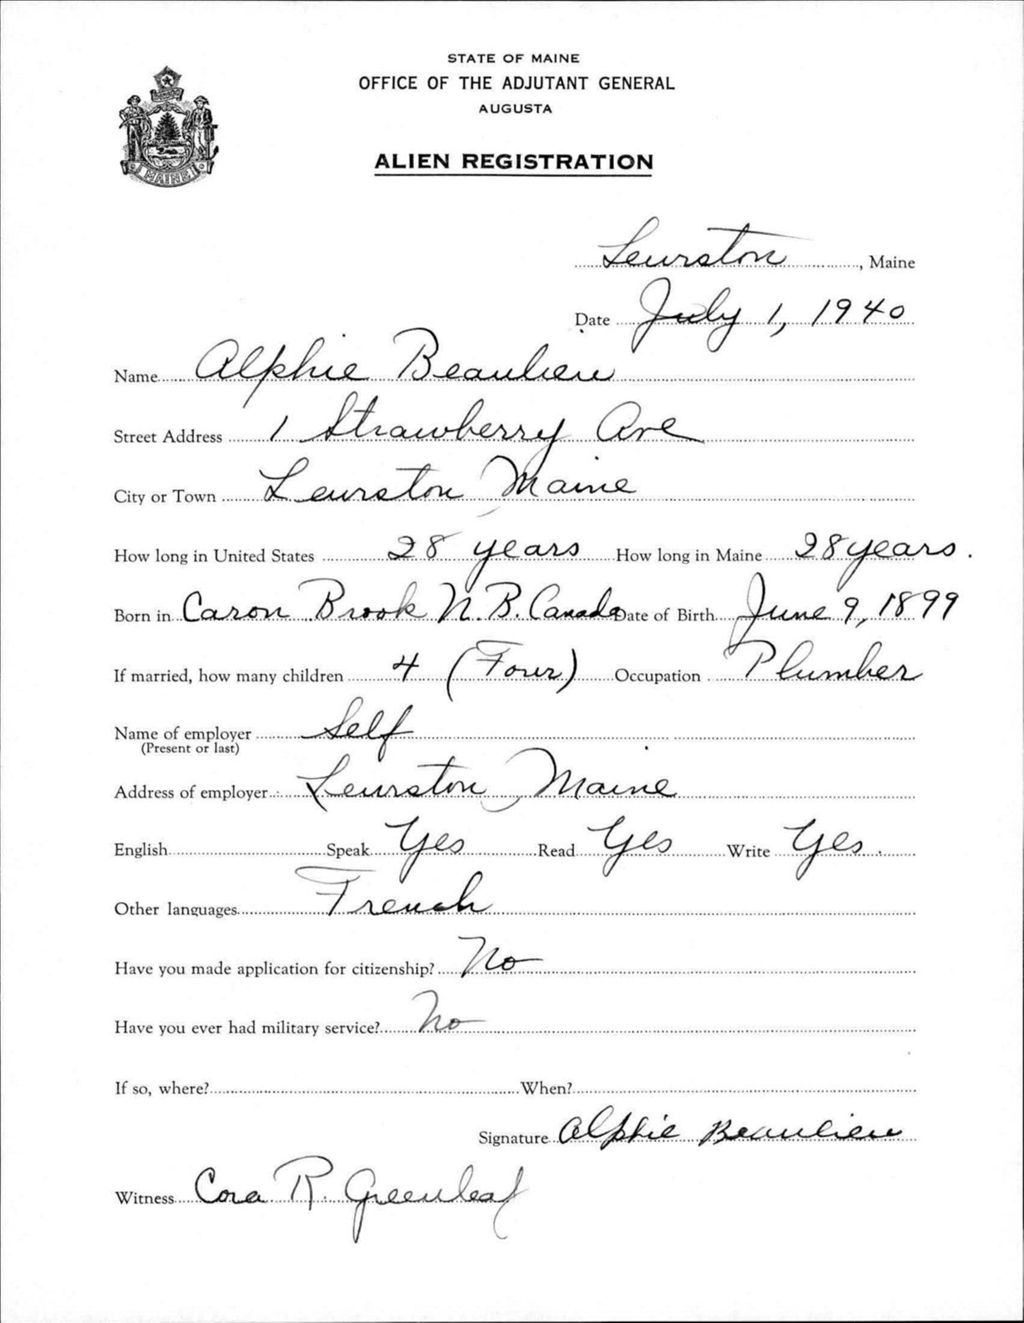 STATE OF MAINE
OFFICE OF THE ADJUTANT GENERAL
AUGUSTA
ALIEN REGISTRATION
MAINE
Lewiston, Maine
Date July 1, 1940
Name Alphie Beaulieu
Street Address 1 Strawberry Ave
City or Town Lewiston Maine
How long in United States 28 years How long in Maine 28 years.
Born in Caron Brook N.B. Canada Date of Birth June 9, 1899
If married, how many children 4 (Four) Occupation Plumber
Name of employer Self
(Present or last)
Address of employer Lewiston Maine
English Speak Yes Read Yes Write Yes.
Other languages French
Have you made application for citizenship? No
Have you ever had military service? No
If so, where? When?
Signature Alphie Beaulieu
Witness Cora R. Greenleaf